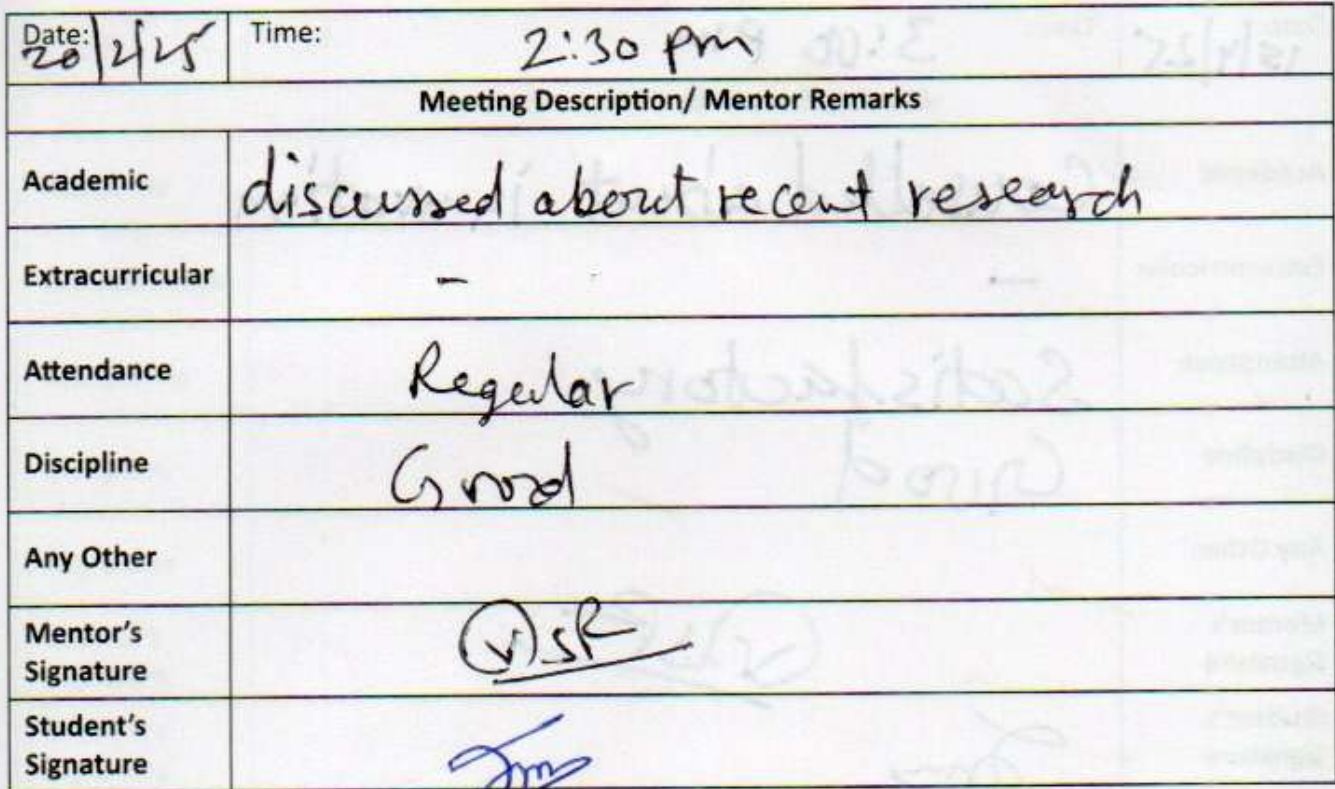 Date: 20/2/25 Time: 2:30 pm
Meeting Description/ Mentor Remarks
Academic discussed about recent research
Extracurricular -
Attendance Regular
Discipline Good
Any Other
Mentor's
Signature
Student's
Signature